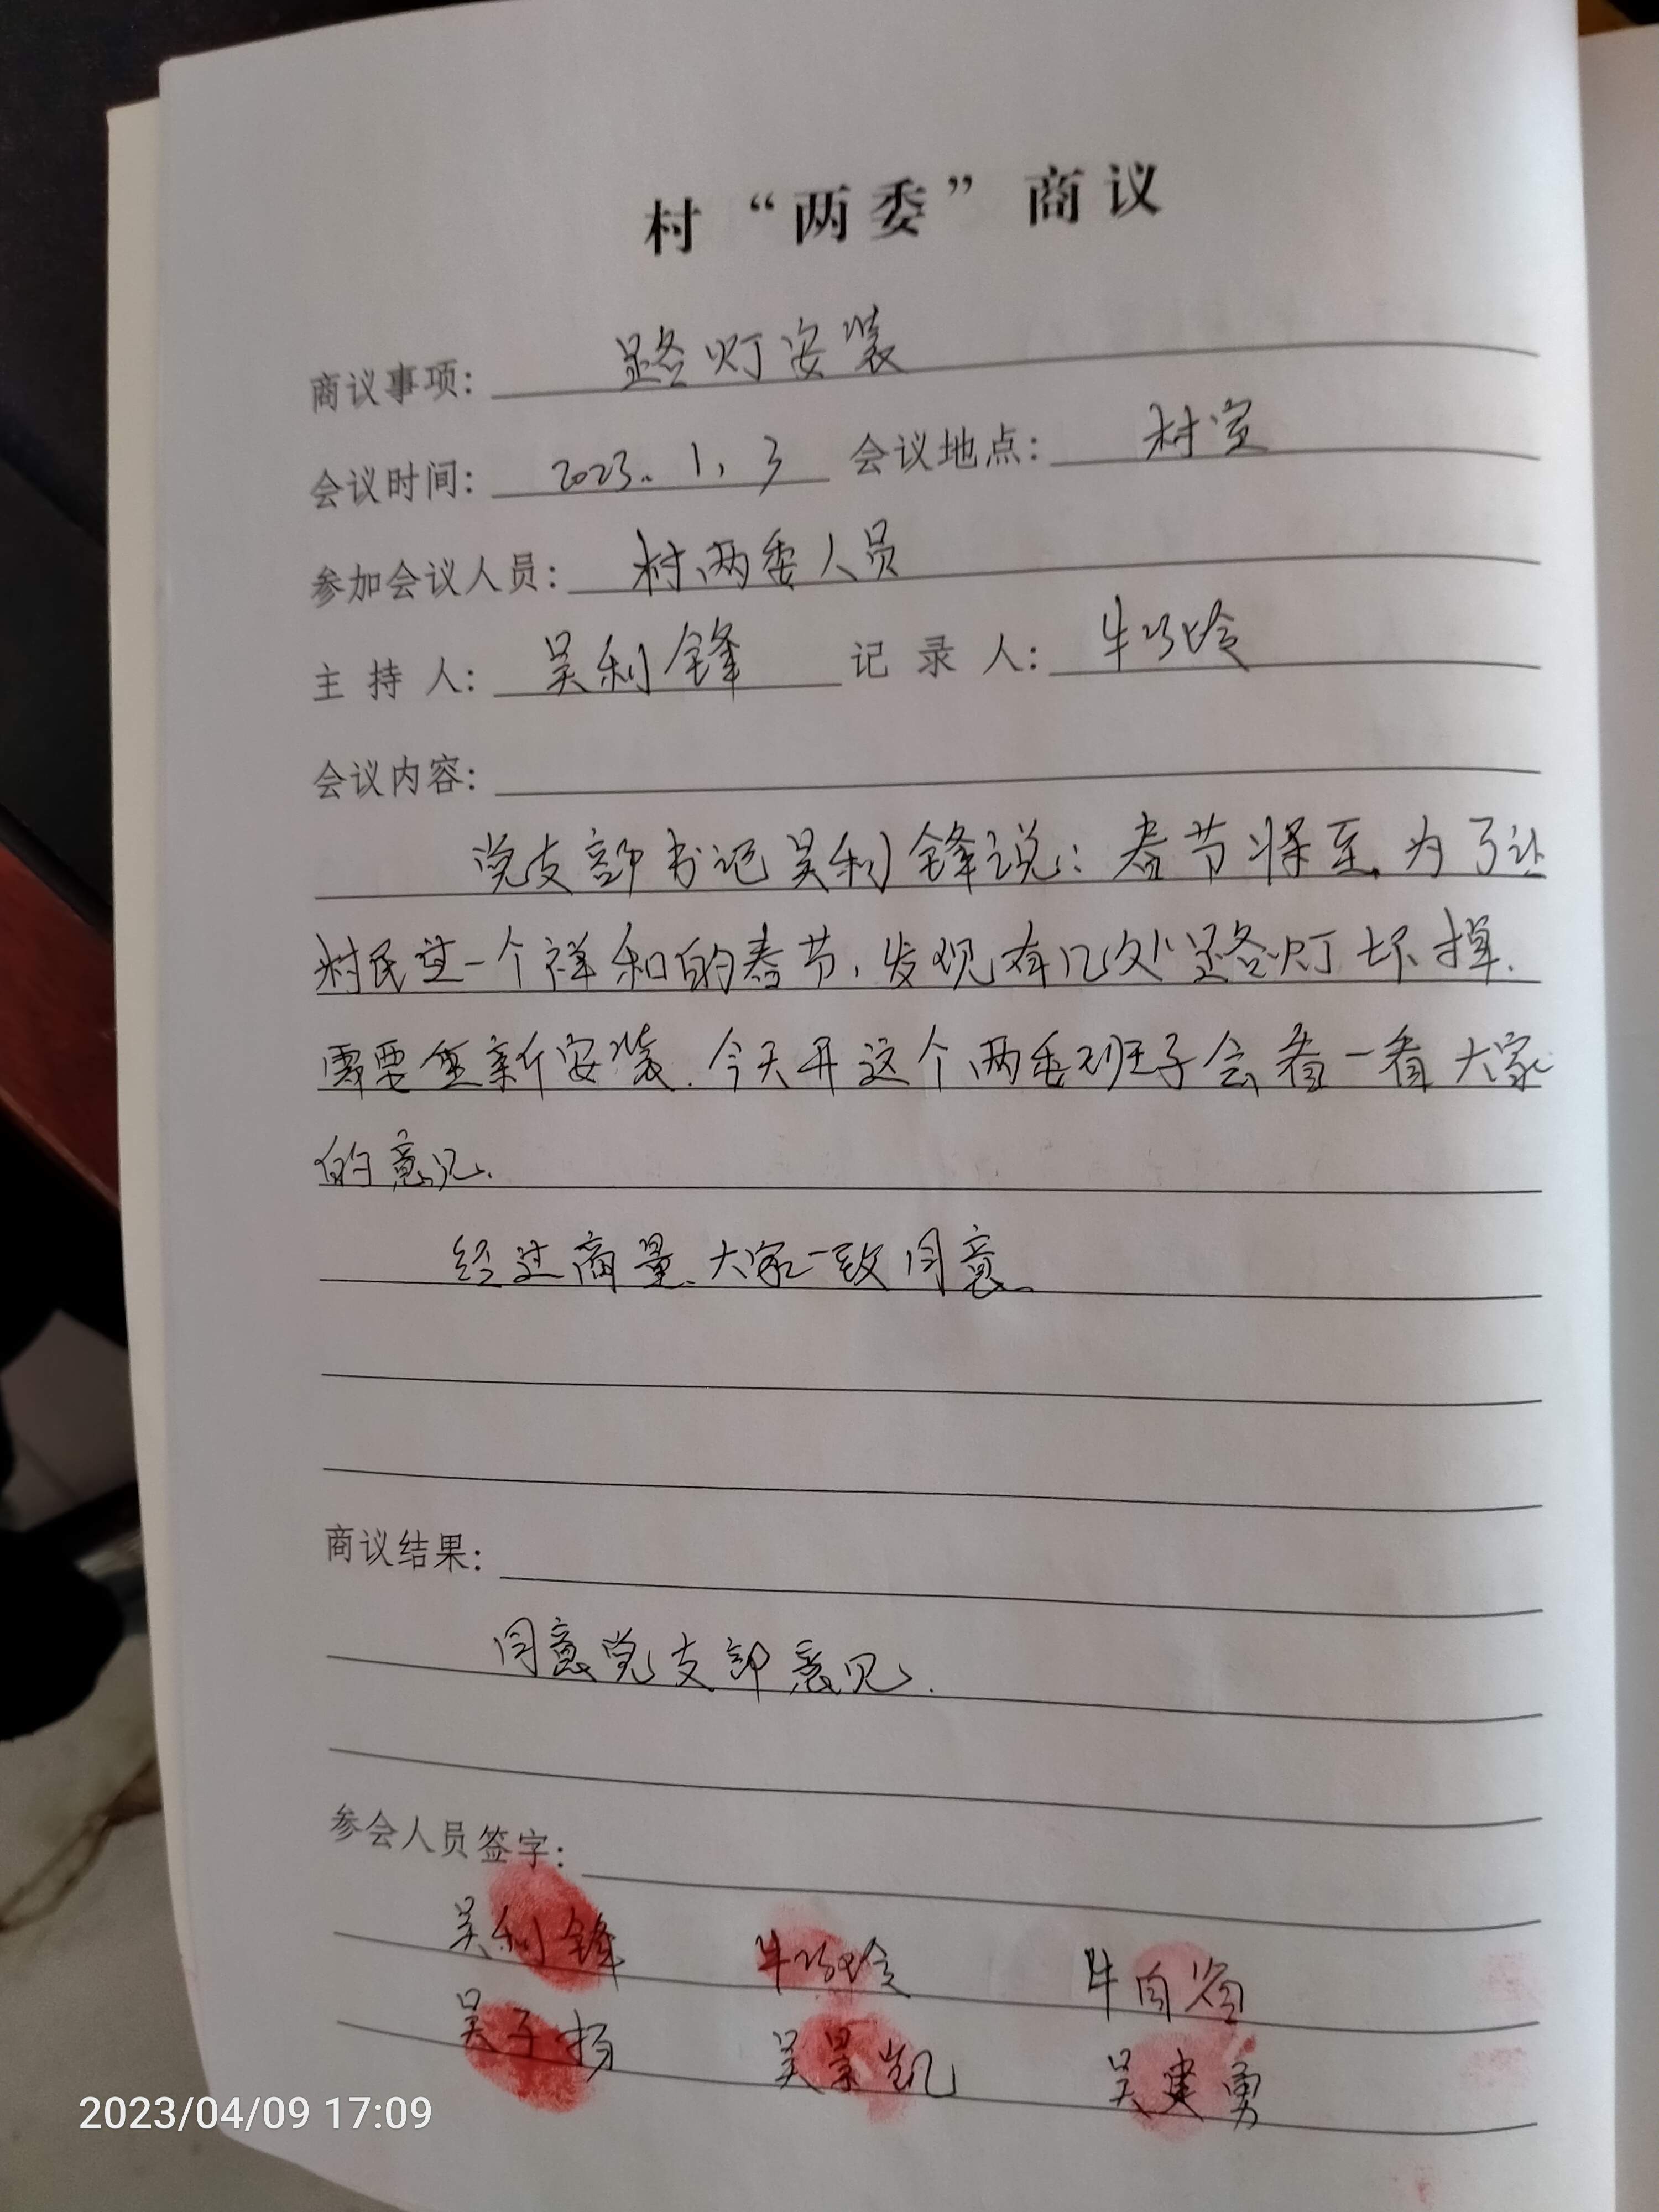 村“两委”商议
商议事项：路灯安装
会议时间：2023.1.3 会议地点：村室
参加会议人员：村两委人员
主持人：吴利锋 记录人：牛巧玲
会议内容：
党支部书记吴利锋说：春节将至，为了让
村民过一个祥和的春节，发现有几处路灯坏掉，
需要重新安装，今天开这个两委班子会，看一看大家
的意见。
经过商量，大家一致同意。
商议结果：
同意党支部意见。
参会人员签字：
吴利锋 牛巧玲 牛自
吴子扬 吴景凯 吴建勇
2023/04/09 17:09